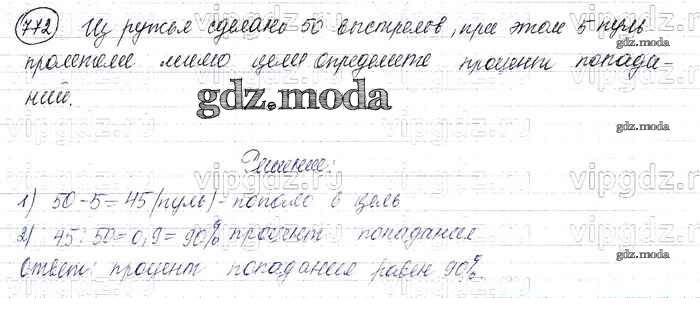 772 Из ружья сделано 50 выстрелов, при этом 5 пуль
пролетели мимо цели определите процент попада-
ний.
gdz.moda
Решение:
1) 50-5=45 (пуль)-попало в цель
2) 45:50=0,9=90% процент попадания
Ответ: процент попадания равен 90%.
vipgdz.ru
vipgdz.ru
gdz.moda
gdz.moda
gdz.moda